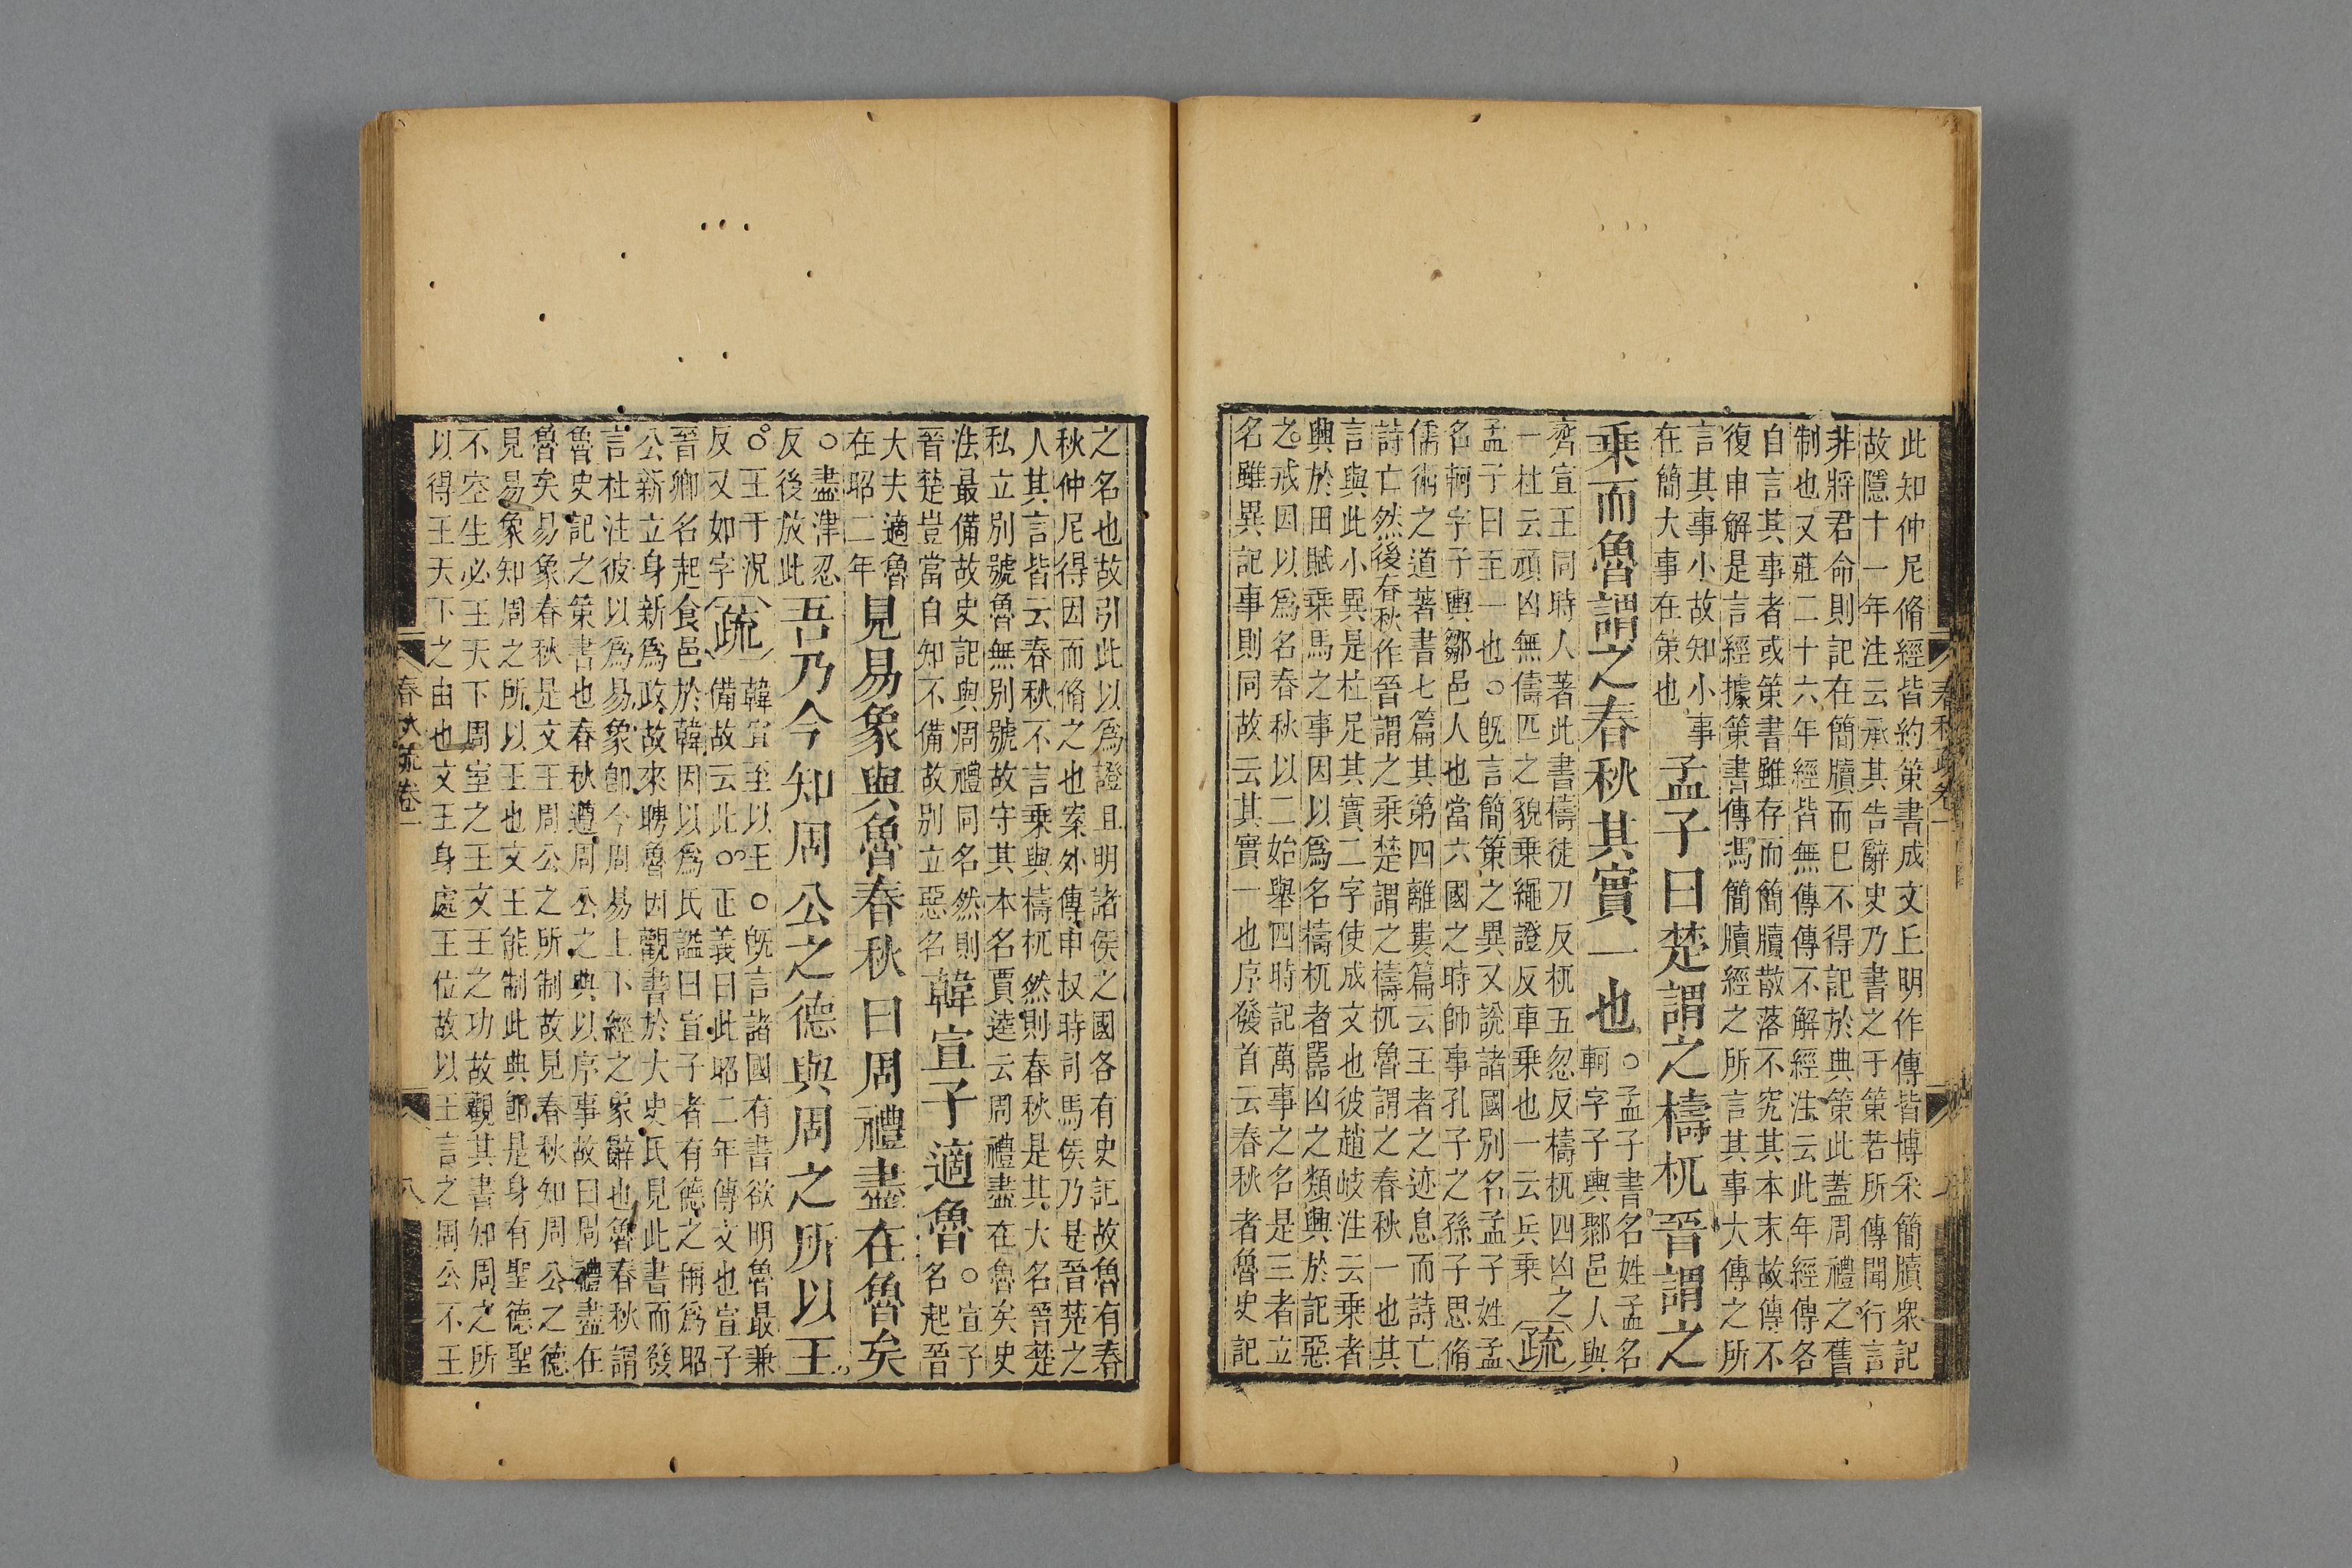 此知仲尼脩經皆約策書成文丘明作傳皆博采簡牘衆記
故隱十一年注云承其告辭史乃書之于策若所傳聞行言
非將君命則記在簡牘而已不得記於典策此蓋周禮之舊
制也又莊二十六年經皆無傳傳不解經注云此年經傳各
自言其事者或策書雖存而簡牘散落不究其本末故傳不
復申解是言經據策書傳馮簡牘經之所言其事大傳之所
言其事小故知小事
在簡大事在策也
孟子曰楚謂之檮杌晉謂之
乗而魯謂之春秋其實一也
○孟子書名姓孟名
軻字子輿鄒邑人與
齊宣王同時人著此書檮徒刀反杌五忽反檮杌四凶之
一杜云頑凶無儔匹之貌乗繩證反車乗也一云兵乗
疏
孟子曰至一也○旣言簡策之異又說諸國別名孟子姓孟
名軻字子輿鄒邑人也當六國之時師事孔子之孫子思脩
儒術之道著書七篇其第四離婁篇云王者之迹息而詩亡
詩亡然後春秋作晉謂之乗楚謂之檮杌魯謂之春秋一也其
言與此小異是杜足其實二字使成文也彼趙岐注云乗者
興於田賦乗馬之事因以爲名檮杌者嚚凶之類興於記惡
之戒因以爲名春秋以二始舉四時記萬事之名是三者立
名雖異記事則同故云其實一也序發首云春秋者魯史記
之名也故引此以爲證且明諸侯之國各有史記故魯有春
秋仲尼得因而脩之也案外傳申叔時司馬侯乃是晉楚之
人其言皆云春秋不言乗與檮杌然則春秋是其大名晉楚
私立別號魯無別號故守其本名賈逵云周禮盡在魯矣史
法最備故史記與周禮同名然則
晉楚豈當自知不備故別立惡名
韓宣子適魯
○宣子
名起晉
大夫適魯
在昭二年
見易象與魯春秋曰周禮盡在魯矣
○盡津忍
反後放此
吾乃今知周公之德與周之所以王
○王于況
反又如字
疏
韓宣至以王○旣言諸國有書欲明魯最兼
備故云此○正義曰此昭二年傳文也宣子
晉卿名起食邑於韓因以爲氏謚曰宣子者有德之稱爲昭
公新立身新爲政故來聘魯因觀書於大史氏見此書而發
言杜注彼以爲易象卽今周易上下經之象辭也魯春秋謂
魯史記之策書也春秋遵周公之典以序事故曰周禮盡在
魯矣易象春秋是文王周公之所制故見春秋知周公之德
見易象知周之所以王也文王能制此典卽是身有聖德聖
不空生必王天下周室之王文王之功故觀其書知周之所
以得王天下之由也文王身處王位故以王言之周公不王
春秋疏卷一
八